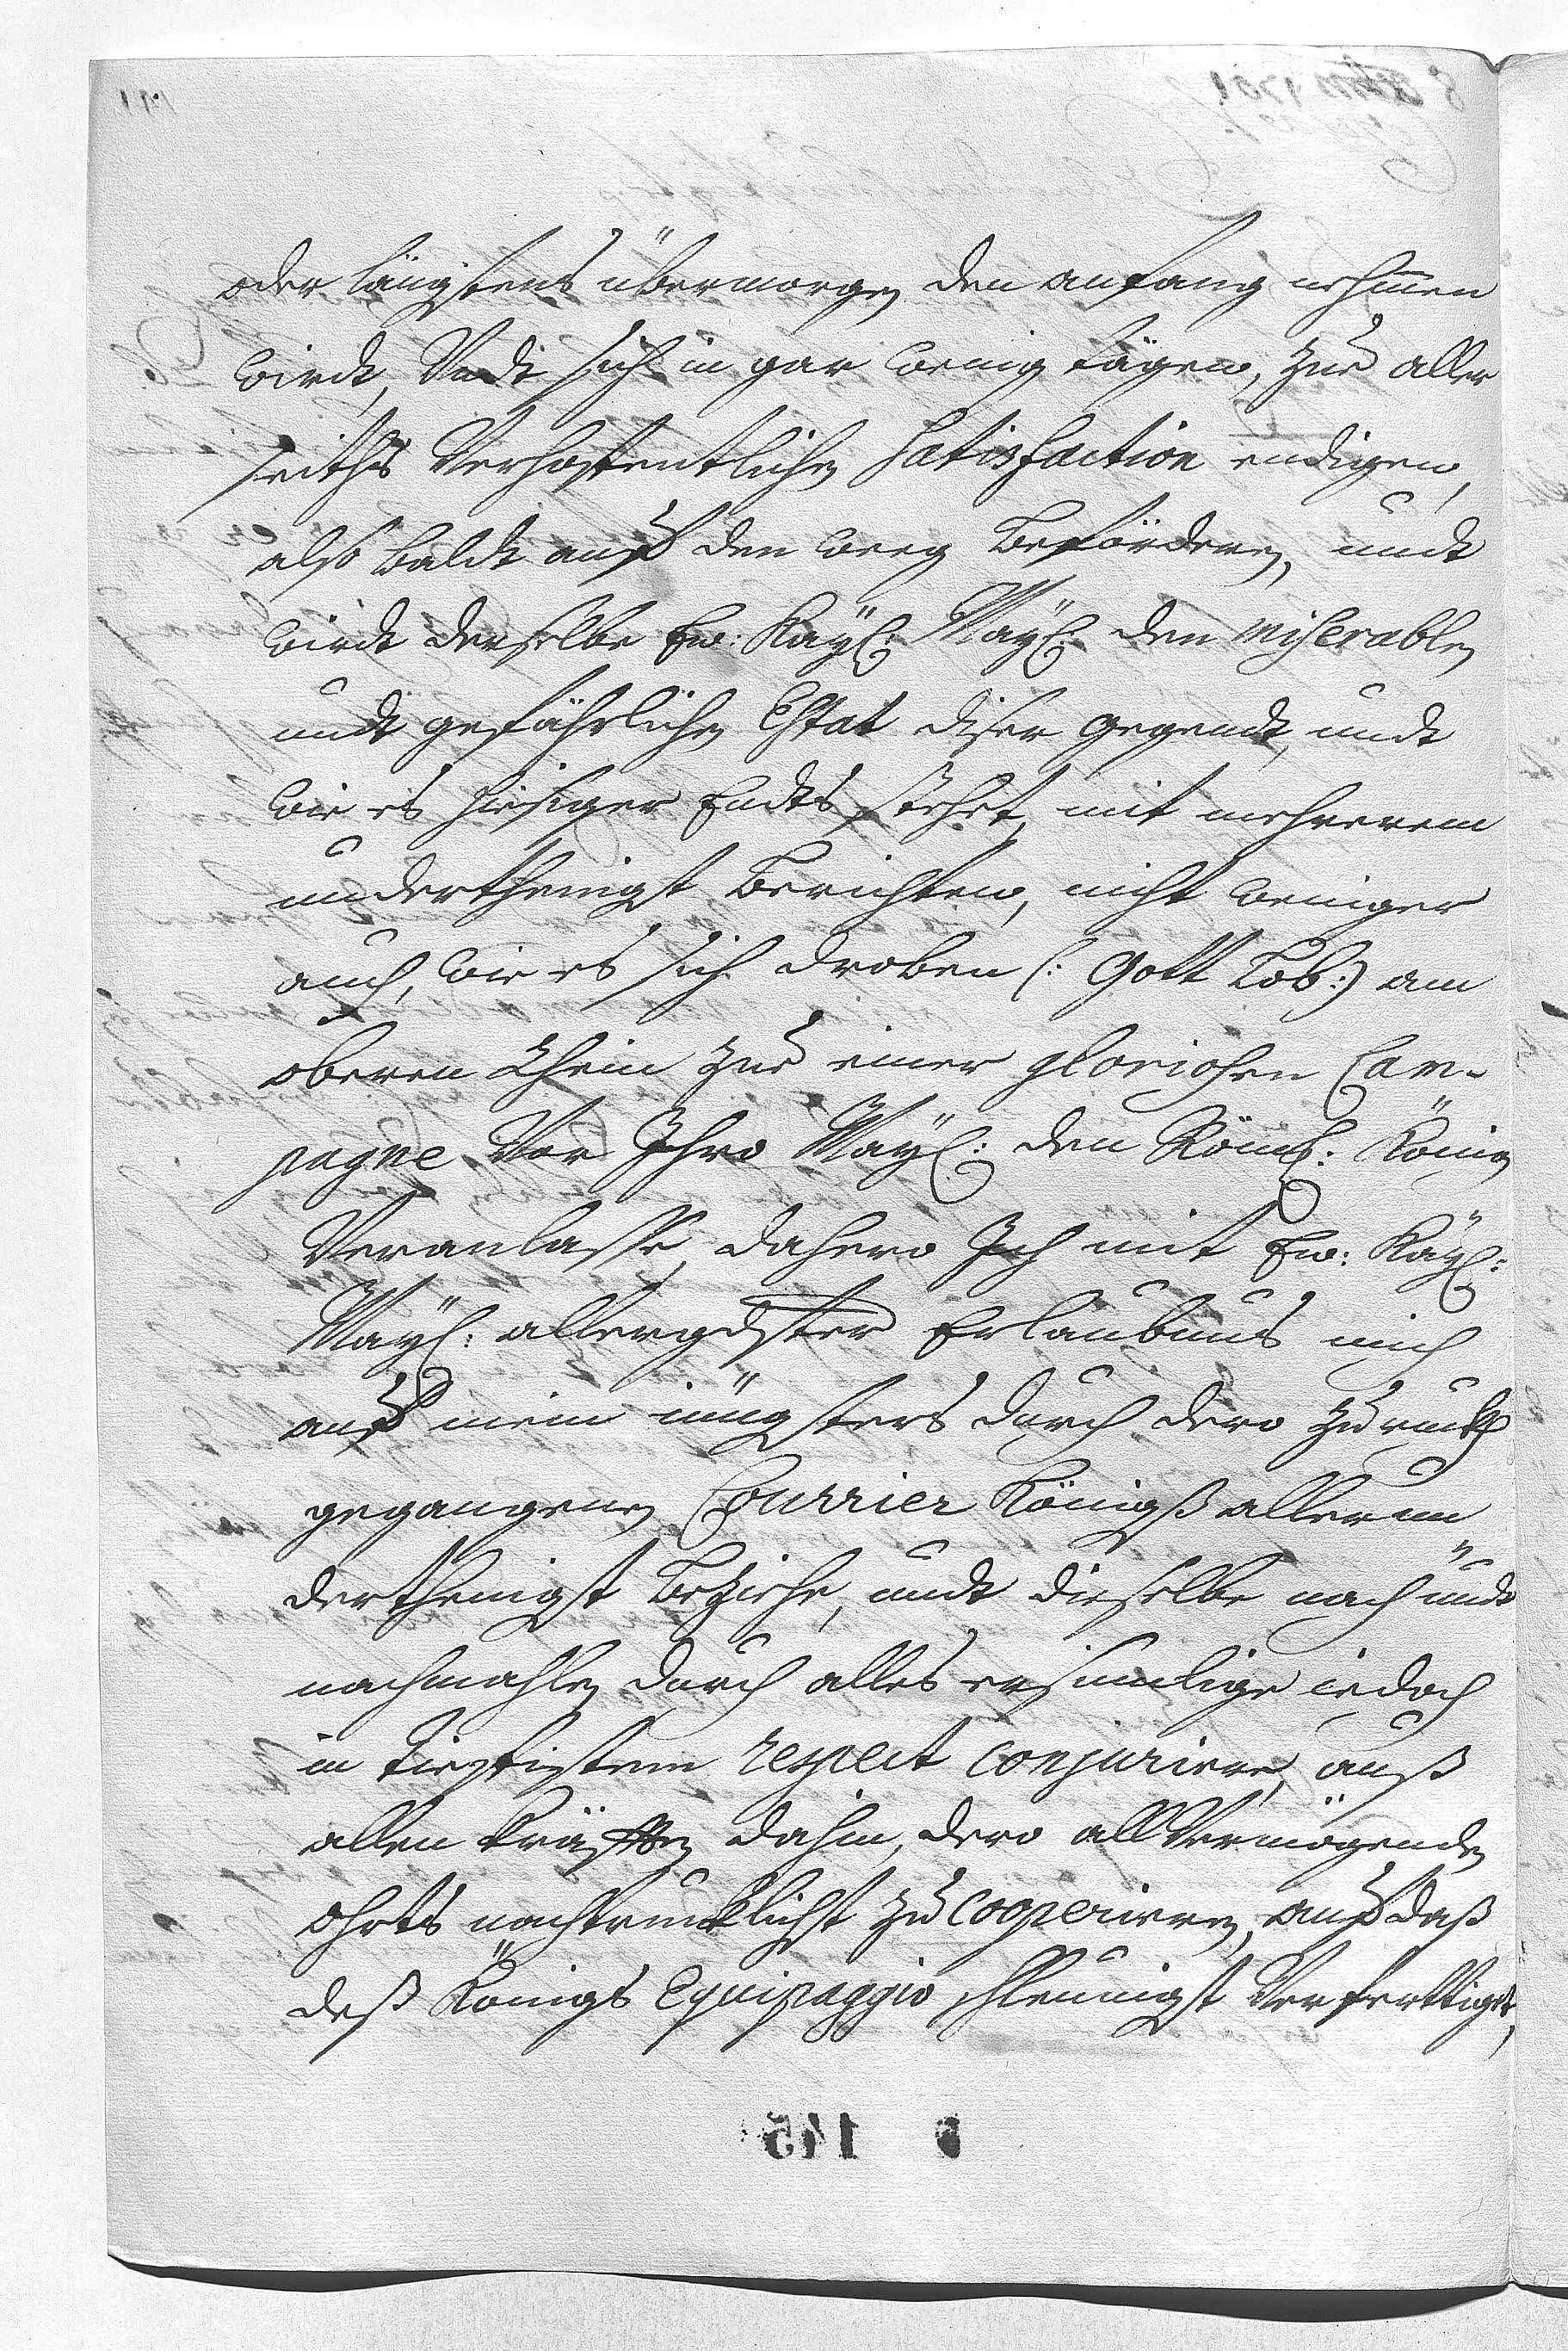 oder längstens übermorgen den anfang nehmen
wirdt, Undt sich in gar wenig tägen, zue aller
seiths Verhoffentlichen Satisfaction endigen,
alß baldt auff den weeg Befördern, undt
wirdt derselbe Ew: Kayl: Mayl: den miserablen
undt gefährlichen Estat diser gegendt, undt
wie es hiesiger Endts stehet, mit mehrerem
underthenigst Berichten, nicht weniger
auch, wie es sich droben (: Gott Lob :) am
oberen Rhein zue einer gloriosen Cam-
pagne Vor Ihro Mayl: den Röml: König
Veranlasse, dahero Ich mit Ew: Kayl:
Mayl: allergdster Erlaubnus mich
auff mein iüngsters durch dero zuruckh
gegangenen Courrier Königß allerun
derthenigst Beziehe, undt dieselbe nach undt
nachmahlen durch alles ersinnlige iedoch
in tiefistem respect conjurire, auß
allen kräfften dahin, dero allVermögenden
ohrts nachtrucklichst zu cooperieren, auff daß
deß Königs Equipaggio schleunigst Verferttiget,
145